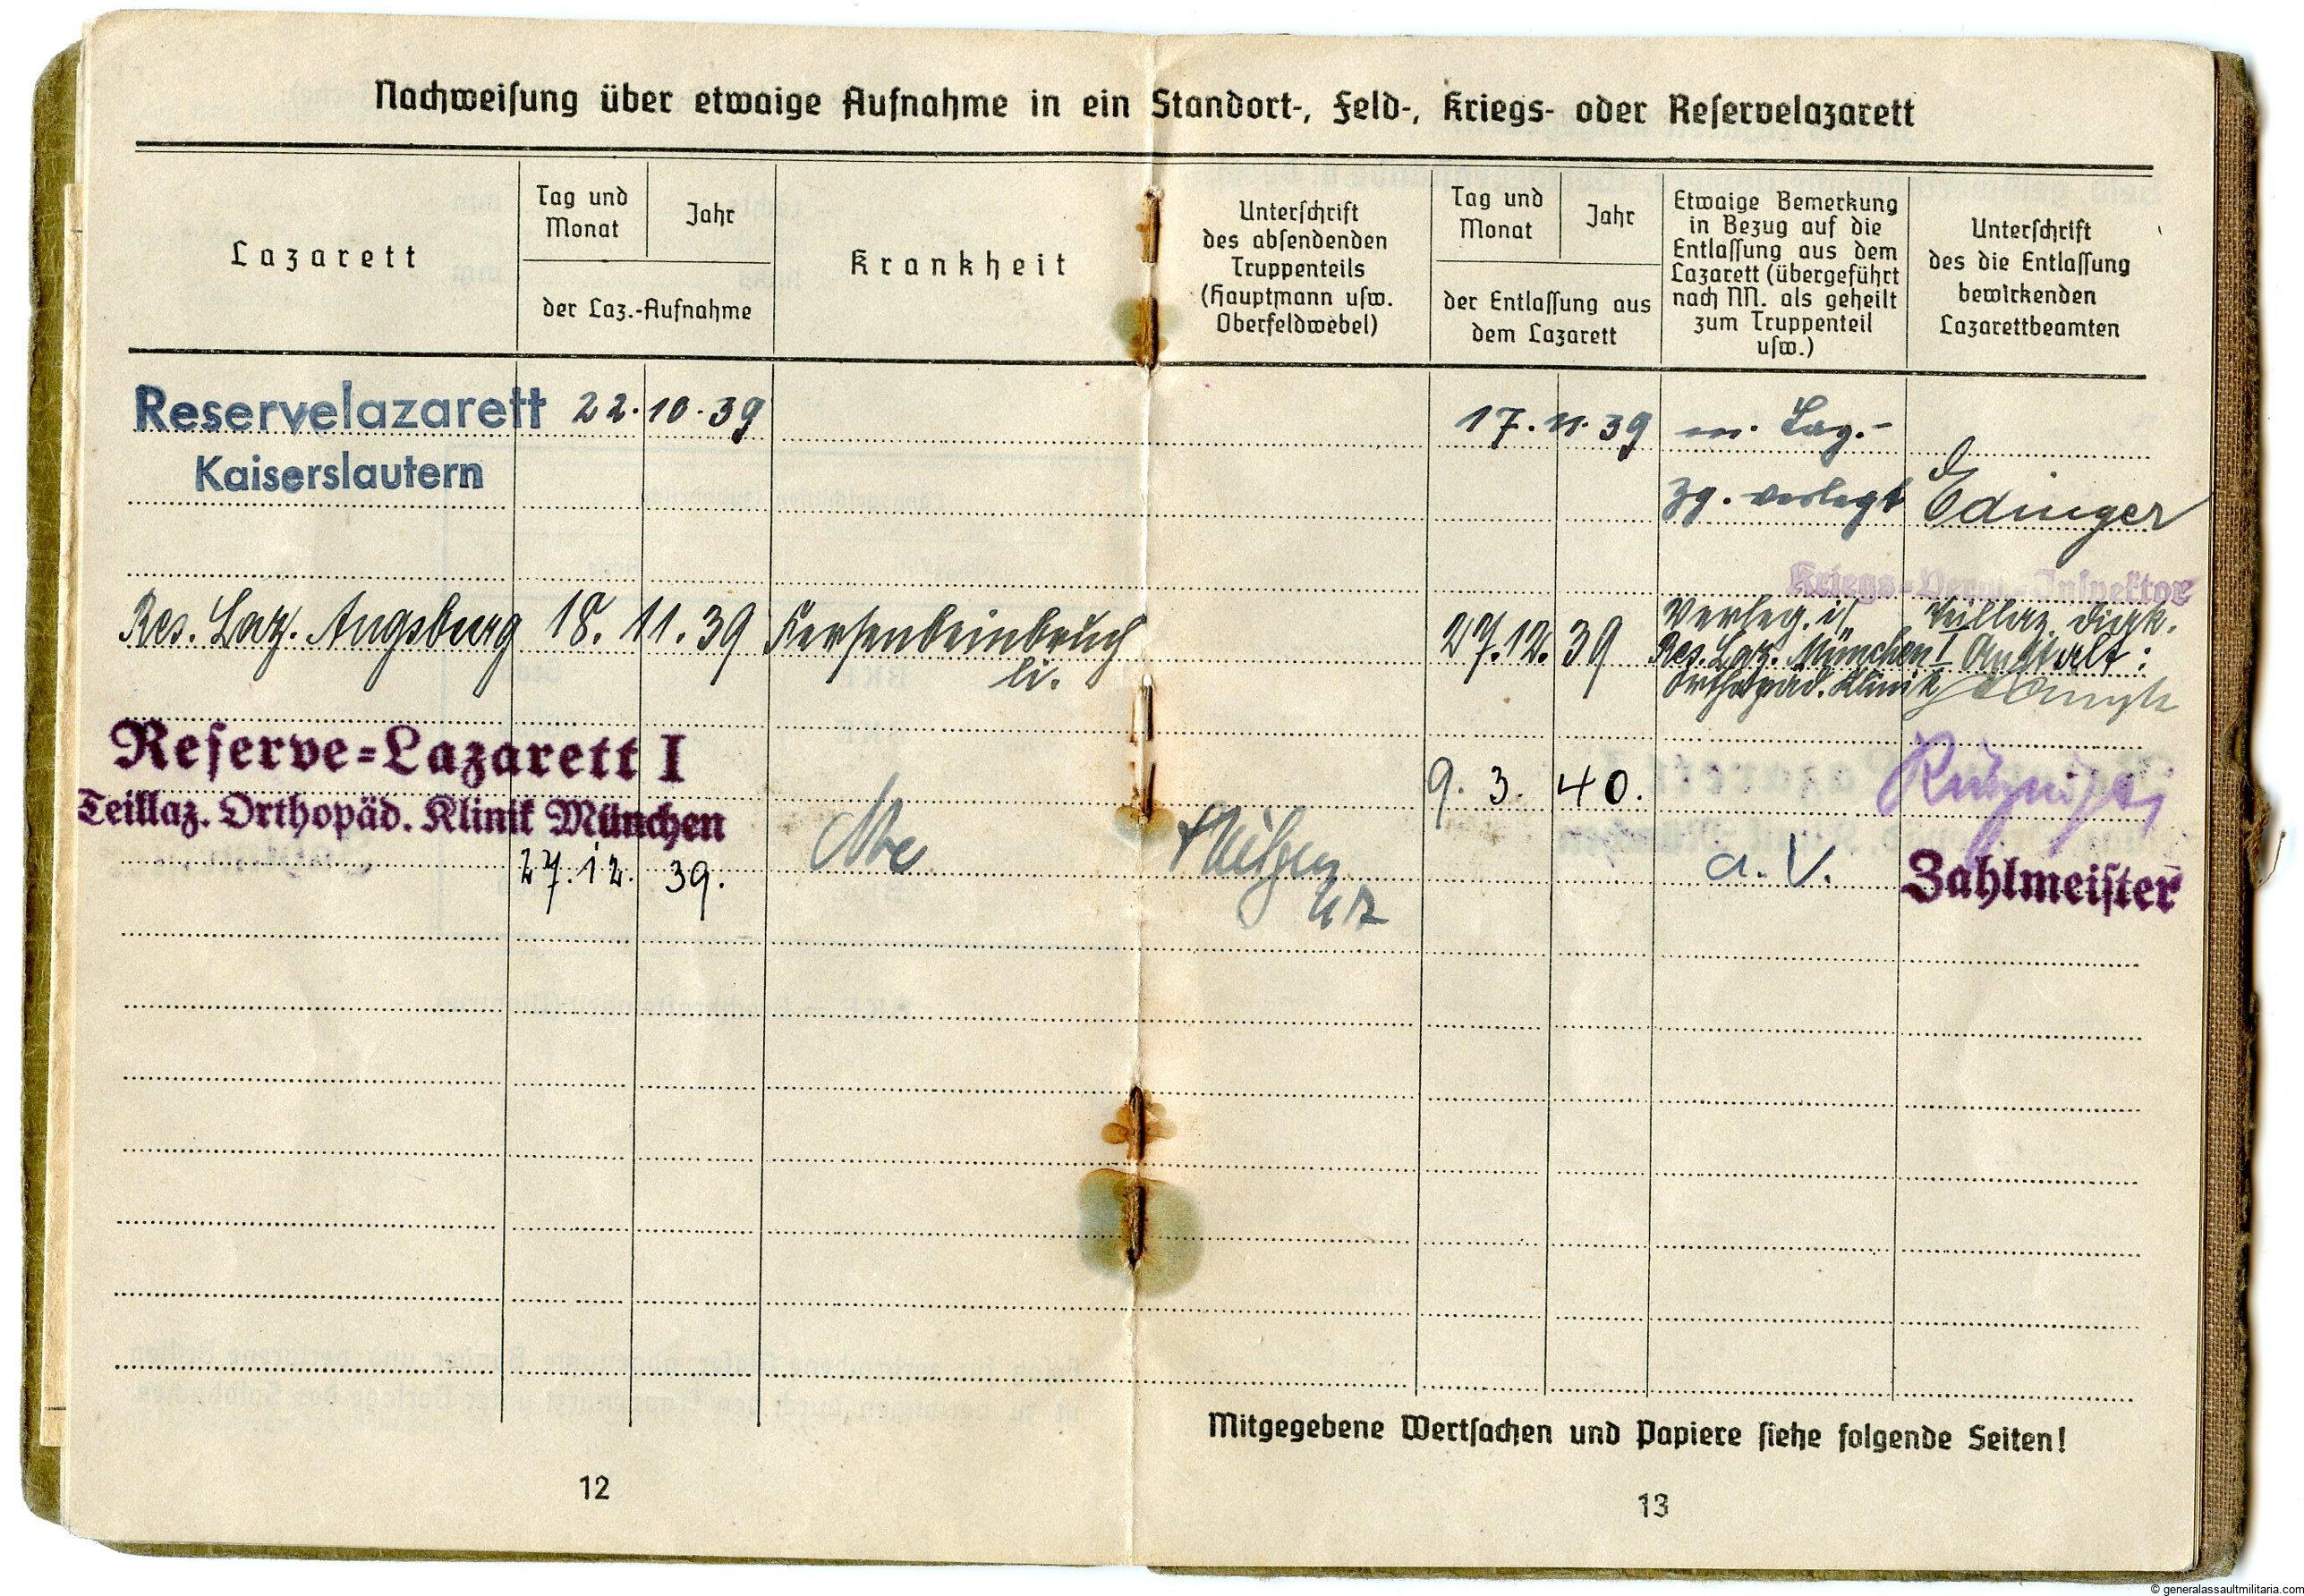 Nachweisung über etwaige Aufnahme in ein Standort-, Feld-, Kriegs- oder Reservelazarett
Lazarett
Tag und
Monat
Jahr
der Laz.-Aufnahme
Krankheit
Unterschrift
des absendenden
Truppenteils
(Hauptmann usw.
Oberfeldwebel)
Tag und
Monat
Jahr
der Entlassung aus
dem Lazarett
Etwaige Bemerkung
in Bezug auf die
Entlassung aus dem
Lazarett (übergeführt
nach NN. als geheilt
zum Truppenteil
usw.)
Unterschrift
des die Entlassung
bewirkenden
Lazarettbeamten
Reservelazarett 22.10.39 17.11.39 m. Laz.-
Kaiserslautern zg. verlegt Edinger
Kriegs-Verw.-Inspektor
Res. Laz. Augsburg 18. 11. 39 Fersenbeinbruch li. 27.12. 39 Verleg. i/ Res. Laz. München I Orthopäd. Klinik Teillaz. Diak. Anstalt:
Reserve-Lazarett I
Teillaz. Orthopäd. Klinik München 9. 3. 40.
27.12. 39. a.V. Zahlmeister
Mitgegebene Wertsachen und Papiere siehe folgende Seiten!
12
13
© generalassaultmilitaria.com